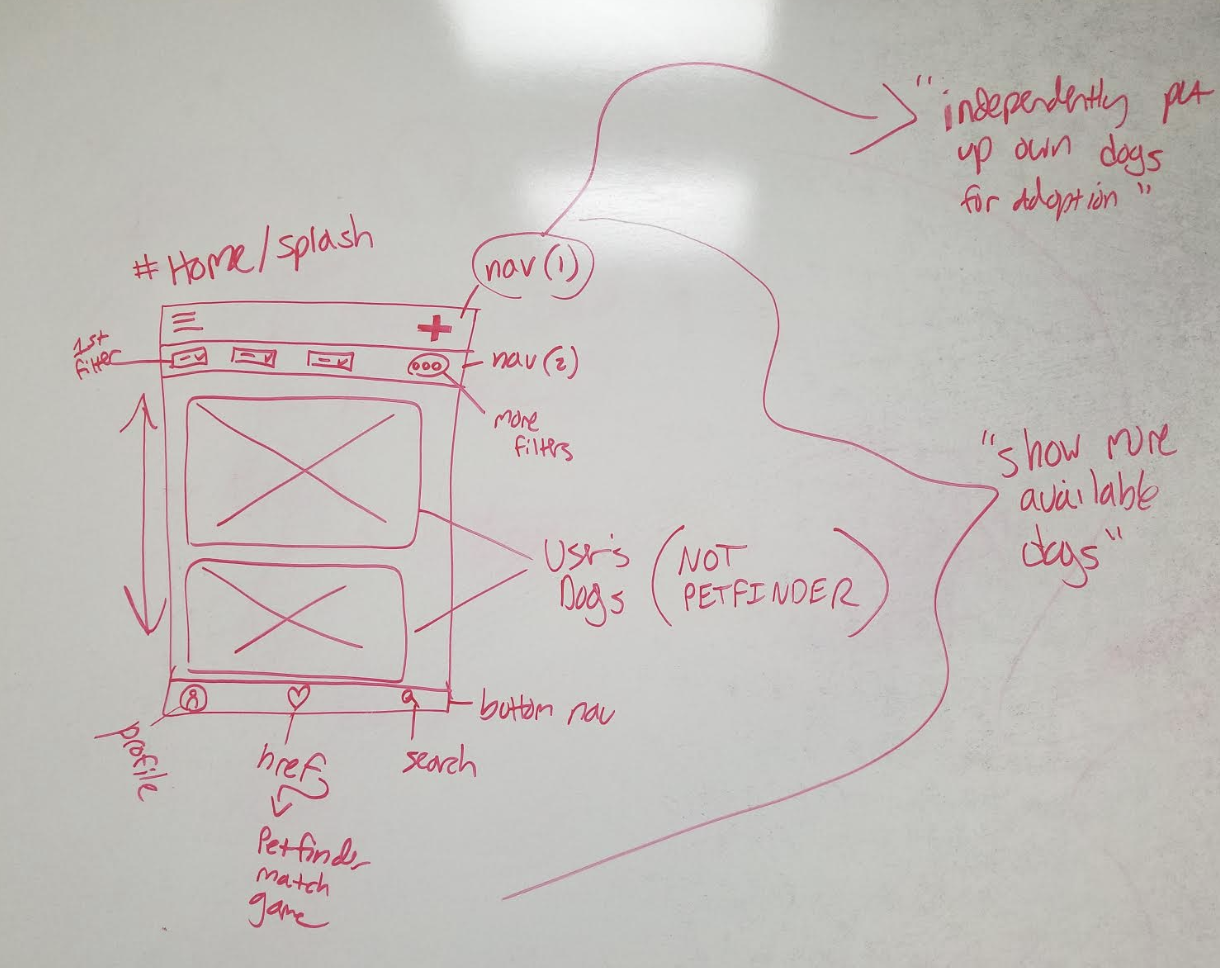 "independently put
up own dogs
for adoption"
# Home/splash
nav(1)
1st
filter
nav(2)
more
filters
"show more
available
dogs"
User's
Dogs
(NOT
PETFINDER)
bottom nav
profile
href
search
Petfinder
match
game